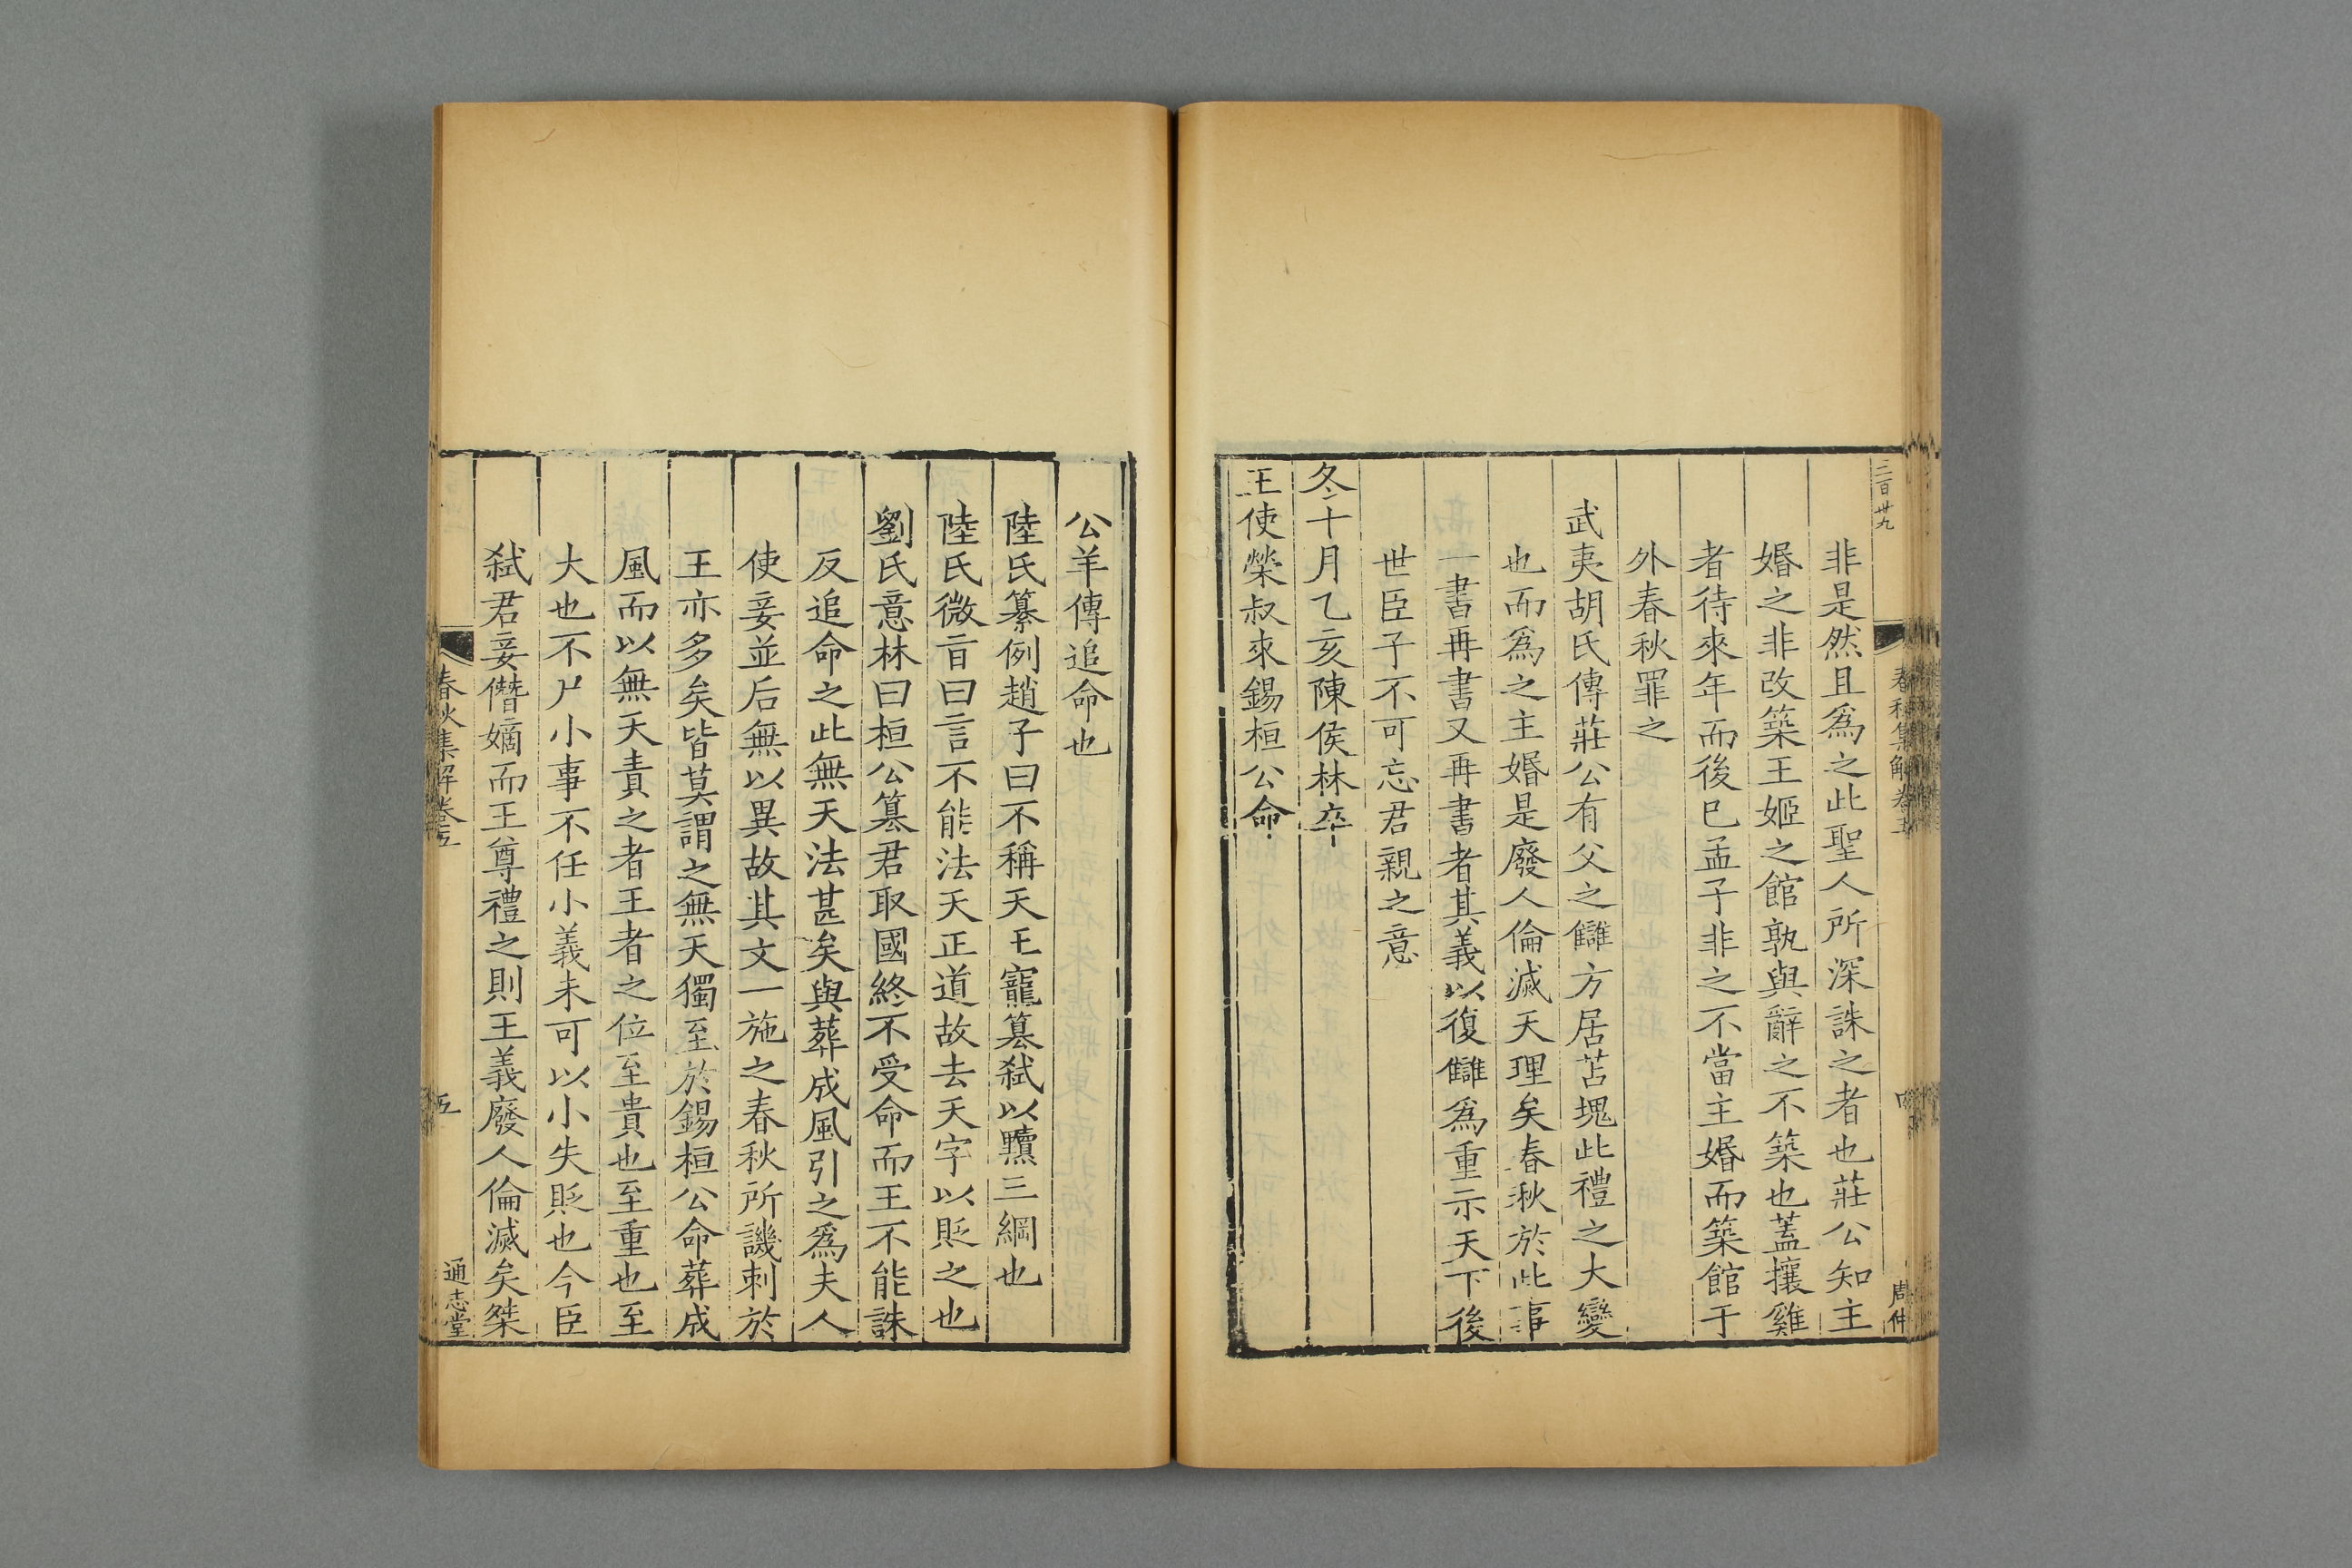 三百卄九
春秋集解卷五
周仲
非是然且爲之此聖人所深誅之者也莊公知主
婚之非改築王姬之館孰與辭之不築也蓋攘雞
者待來年而後已孟子非之不當主婚而築館于
外春秋罪之
武夷胡氏傳莊公有父之讎方居苫塊此禮之大變
也而爲之主婚是廢人倫滅天理矣春秋於此事
一書再書又再書者其義以復讎爲重示天下後
世臣子不可忘君親之意
冬十月乙亥陳侯林卒
王使榮叔來錫桓公命
公羊傳追命也
陸氏纂例趙子曰不稱天王寵簒弑以黷三綱也
陸氏微旨曰言不能法天正道故去天字以貶之也
劉氏意林曰桓公簒君取國終不受命而王不能誅
反追命之此無天法甚矣與葬成風引之爲夫人
使妾並后無以異故其文一施之春秋所譏刺於
王亦多矣皆莫謂之無天獨至於錫桓公命葬成
風而以無天責之者王者之位至貴也至重也至
大也不尸小事不任小義未可以小失貶也今臣
弑君妾僭嫡而王尊禮之則王義廢人倫滅矣桀
春秋集解卷五
五
通志堂